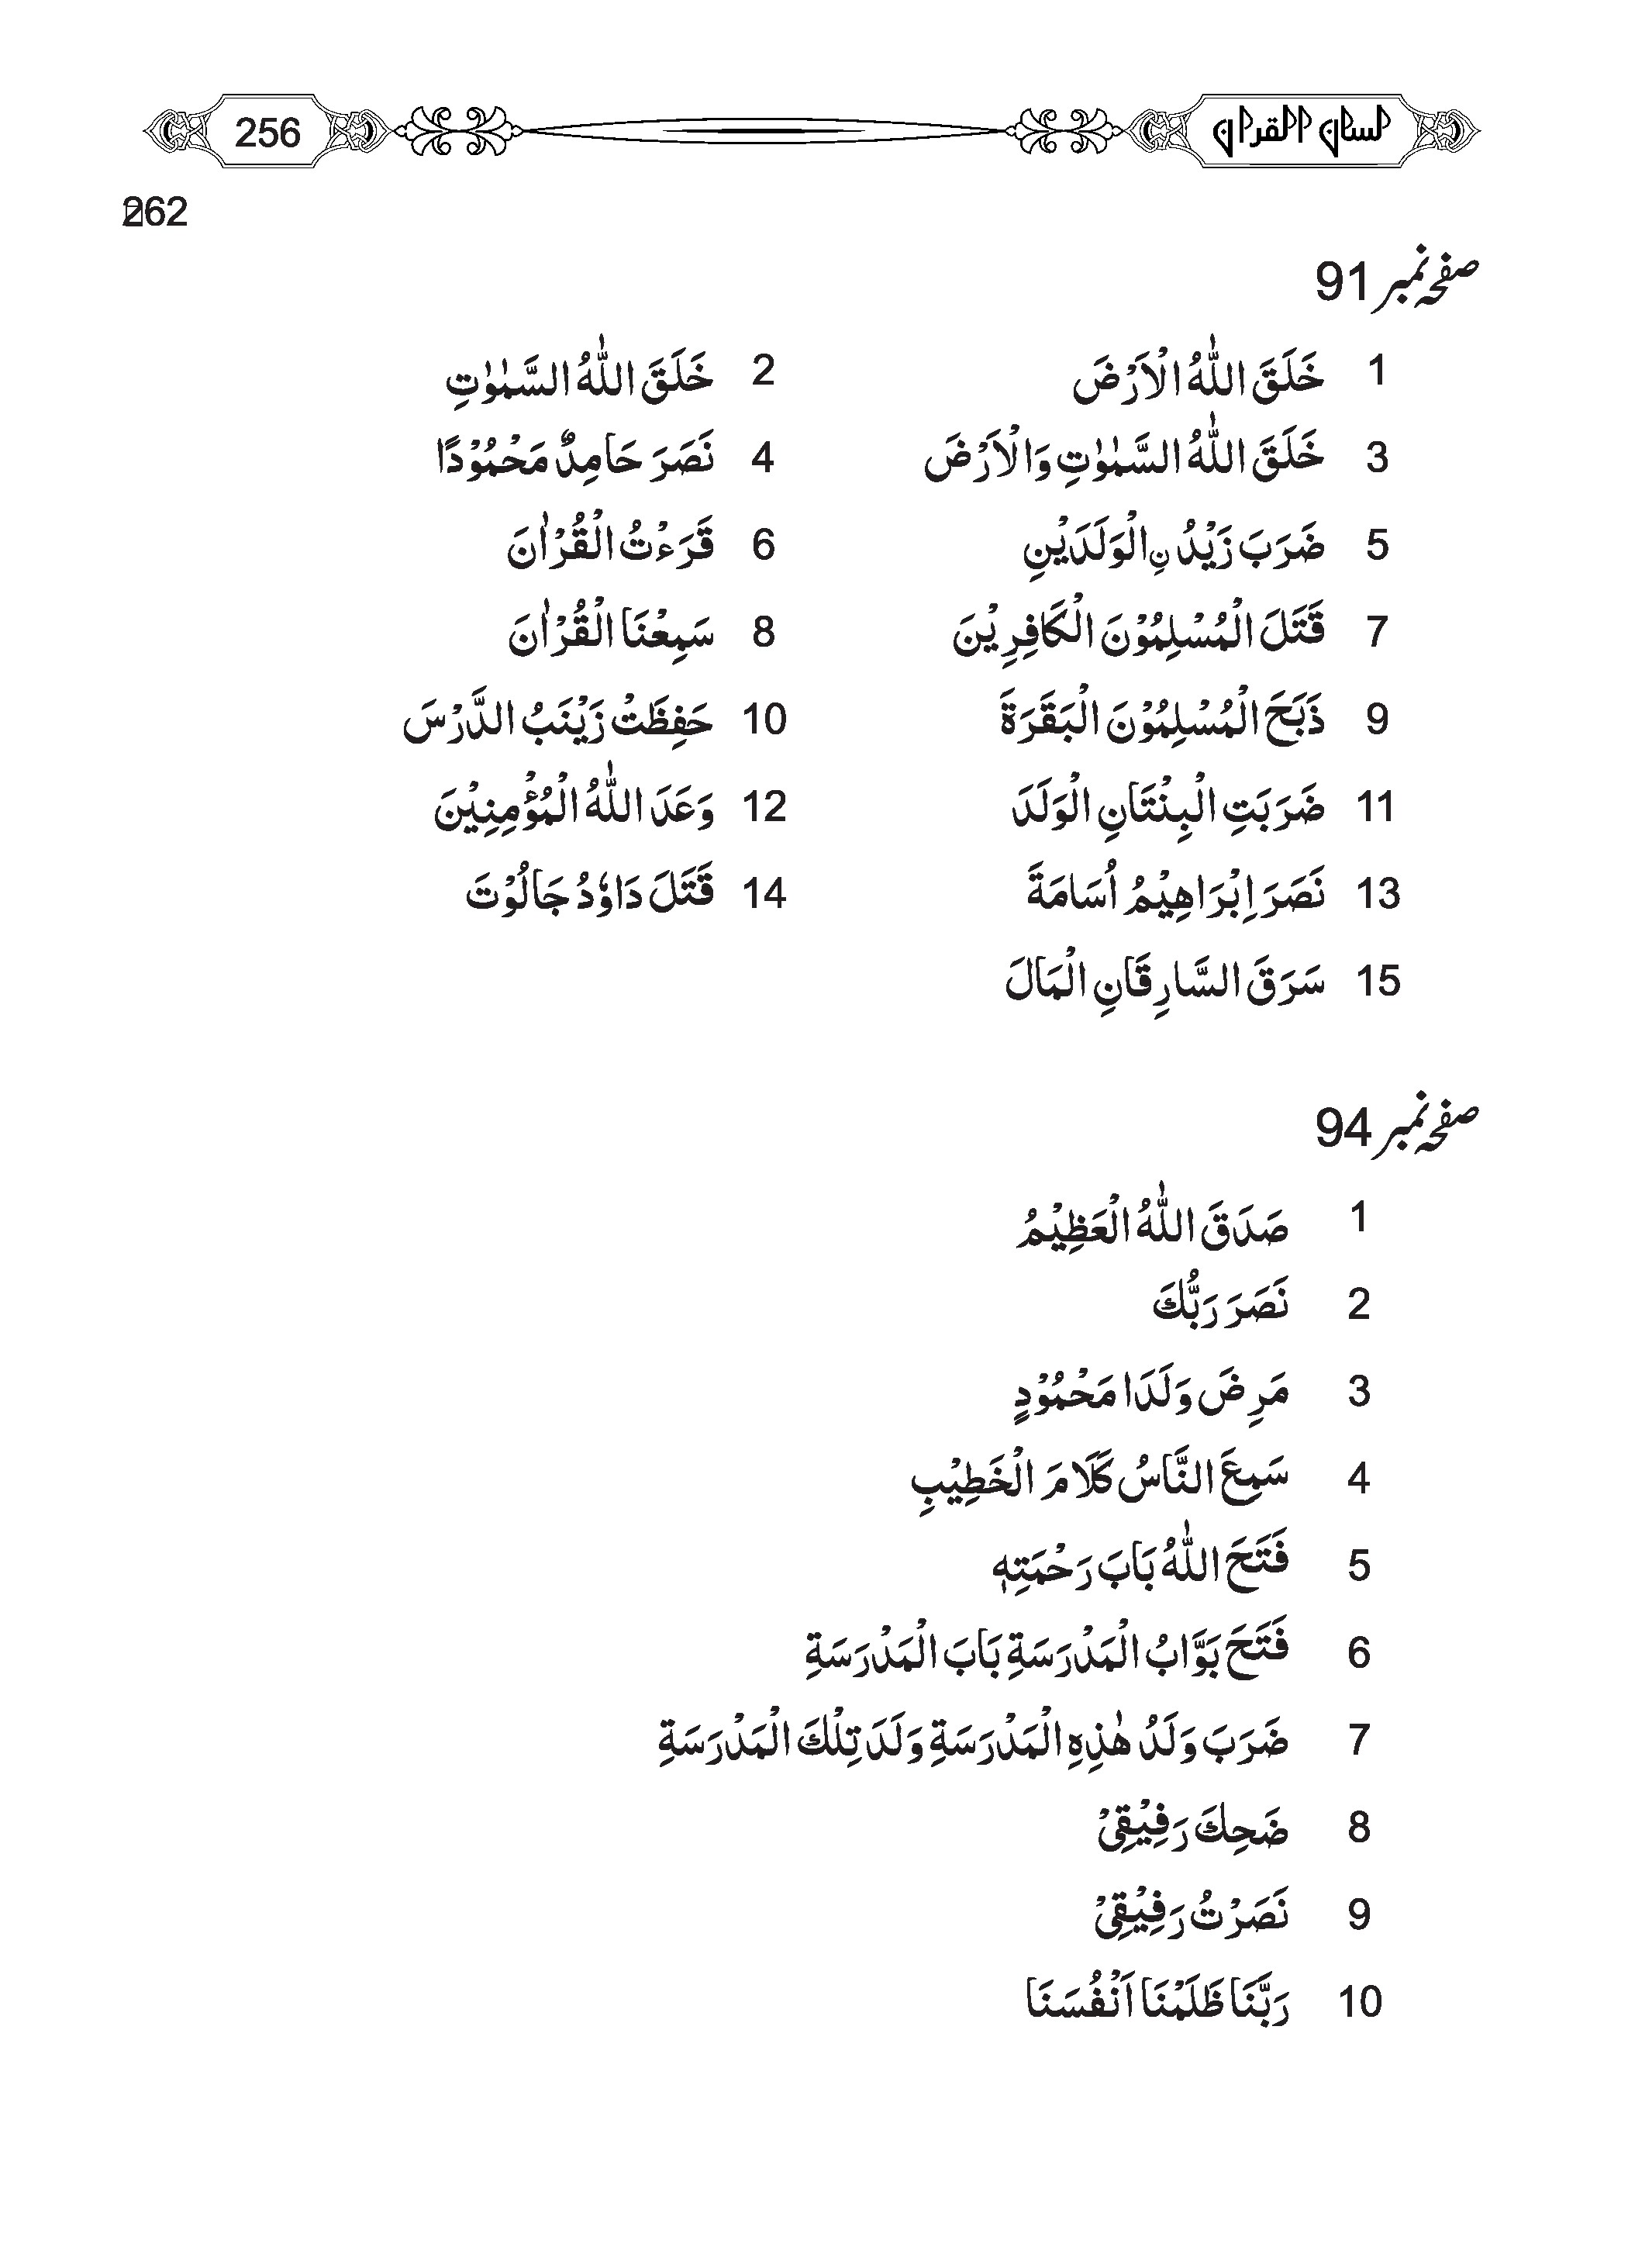 لسان القرآن 256
262
صفحہ نمبر 91
1 خَلَقَ اللّٰهُ الْاَرْضَ 2 خَلَقَ اللّٰهُ السَّمٰوٰتِ
3 خَلَقَ اللّٰهُ السَّمٰوٰتِ وَالْاَرْضَ 4 نَصَرَ حَامِدٌ مَحْمُوْدًا
5 ضَرَبَ زَيْدُ نِ الْوَلَدَيْنِ 6 قَرَءْتُ الْقُرْاٰنَ
7 قَتَلَ الْمُسْلِمُوْنَ الْكَافِرِيْنَ 8 سَمِعْنَا الْقُرْاٰنَ
9 ذَبَحَ الْمُسْلِمُوْنَ الْبَقَرَةَ 10 حَفِظَتْ زَيْنَبُ الدَّرْسَ
11 ضَرَبَتِ الْبِنْتَانِ الْوَلَدَ 12 وَعَدَ اللّٰهُ الْمُؤْمِنِيْنَ
13 نَصَرَ اِبْرَاهِيْمُ اُسَامَةَ 14 قَتَلَ دَاوٗدُ جَالُوْتَ
15 سَرَقَ السَّارِقَانِ الْمَالَ
صفحہ نمبر 94
1 صَدَقَ اللّٰهُ الْعَظِيْمُ
2 نَصَرَ رَبُّكَ
3 مَرِضَ وَلَدَا مَحْمُوْدٍ
4 سَمِعَ النَّاسُ كَلَامَ الْخَطِيْبِ
5 فَتَحَ اللّٰهُ بَابَ رَحْمَتِهٖ
6 فَتَحَ بَوَّابُ الْمَدْرَسَةِ بَابَ الْمَدْرَسَةِ
7 ضَرَبَ وَلَدُ هٰذِهِ الْمَدْرَسَةِ وَلَدَ تِلْكَ الْمَدْرَسَةِ
8 ضَحِكَ رَفِيْقِيْ
9 نَصَرْتُ رَفِيْقِيْ
10 رَبَّنَا ظَلَمْنَا اَنْفُسَنَا